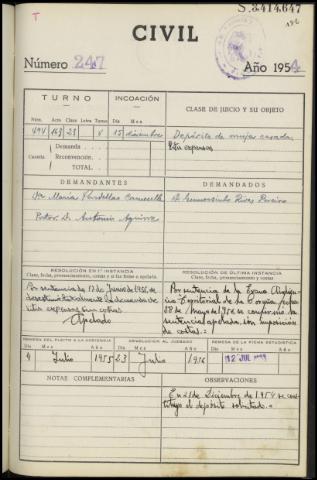 S.3414.647
CIVIL
Número 247
Año 1954
TURNO
INCOACIÓN
CLASE DE JUICIO Y SU OBJETO
Núm. Acto Clase Letra Turno
Día Mes
494 163 23 4 15 diciembre
Depósito de mujer casada
Litis expensas
Demanda
Cuantía Reconvención
TOTAL
DEMANDANTES
DEMANDADOS
Dª Maria
D. Rivas
Procr. D. Antonio Aguirre
RESOLUCIÓN EN 1ª INSTANCIA
Clase, fecha, pronunciamiento, costas y si fué firme o apelada
RESOLUCIÓN DE ÚLTIMA INSTANCIA
Clase, fecha, pronunciamiento, costas
Por sentencia de 17 de Junio de 1955, se
desestimó la demanda de
litis expensas sin costas
Apelado
Por sentencia de la Excma Audien-
cia Territorial de la Coruña fecha
28 de Mayo de 1956 se confirmó la
sentencia apelada, sin imposición
de costas.
REMESA DEL PLEITO A LA AUDIENCIA
DEVOLUCIÓN AL JUZGADO
REMESA DE LA FICHA ESTADÍSTICA
Día Mes Año
Día Mes Año
Día Mes Año
4 Julio 1955
23 Julio 1956
12 JUL
NOTAS COMPLEMENTARIAS
OBSERVACIONES
En 21 de Diciembre de 1954 se cons-
tituyó el depósito solicitado.